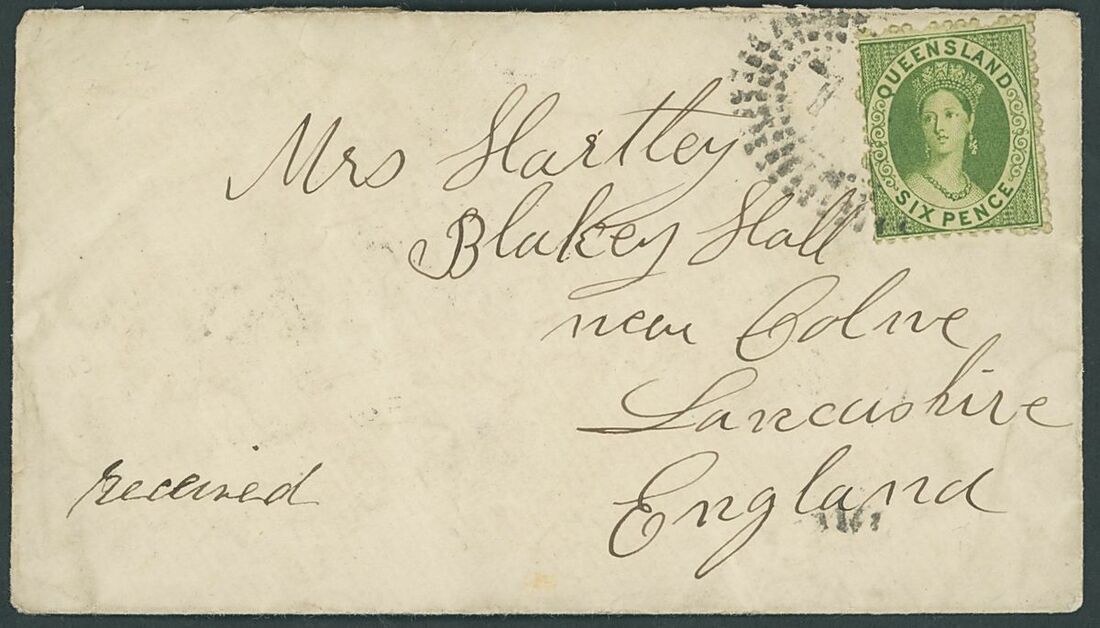 QUEENSLAND
SIX PENCE
Mrs Hartley
Blakey Hall
near Colne
Lancashire
England
received